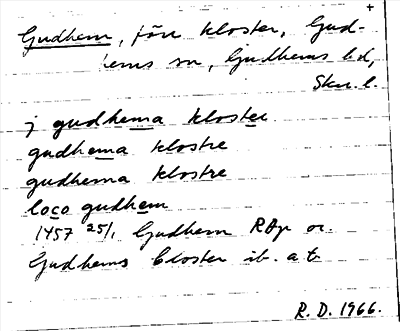 +
Gudhem, förr kloster, Gud-
hems sn, Gudhems hd,
Skar. l.
j gudhema kloster
gudhema klostre
gudhema klostre
loco gudhem
1457 25/1 Gudhem RAp or.
Gudhems Closter ib. a t.
R. D. 1966.